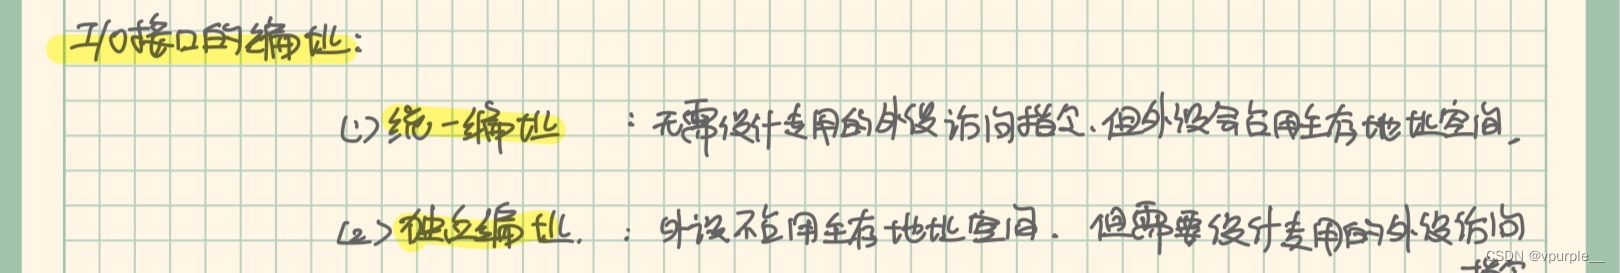 I/O接口的编址:
(1)统一编址 : 无需设计专用的外设访问指令.但外设会占用主存地址空间.
(2)独立编址. : 外设不占用主存地址空间. 但需要设计专用的外设访问
指令
CSDN @vpurple__